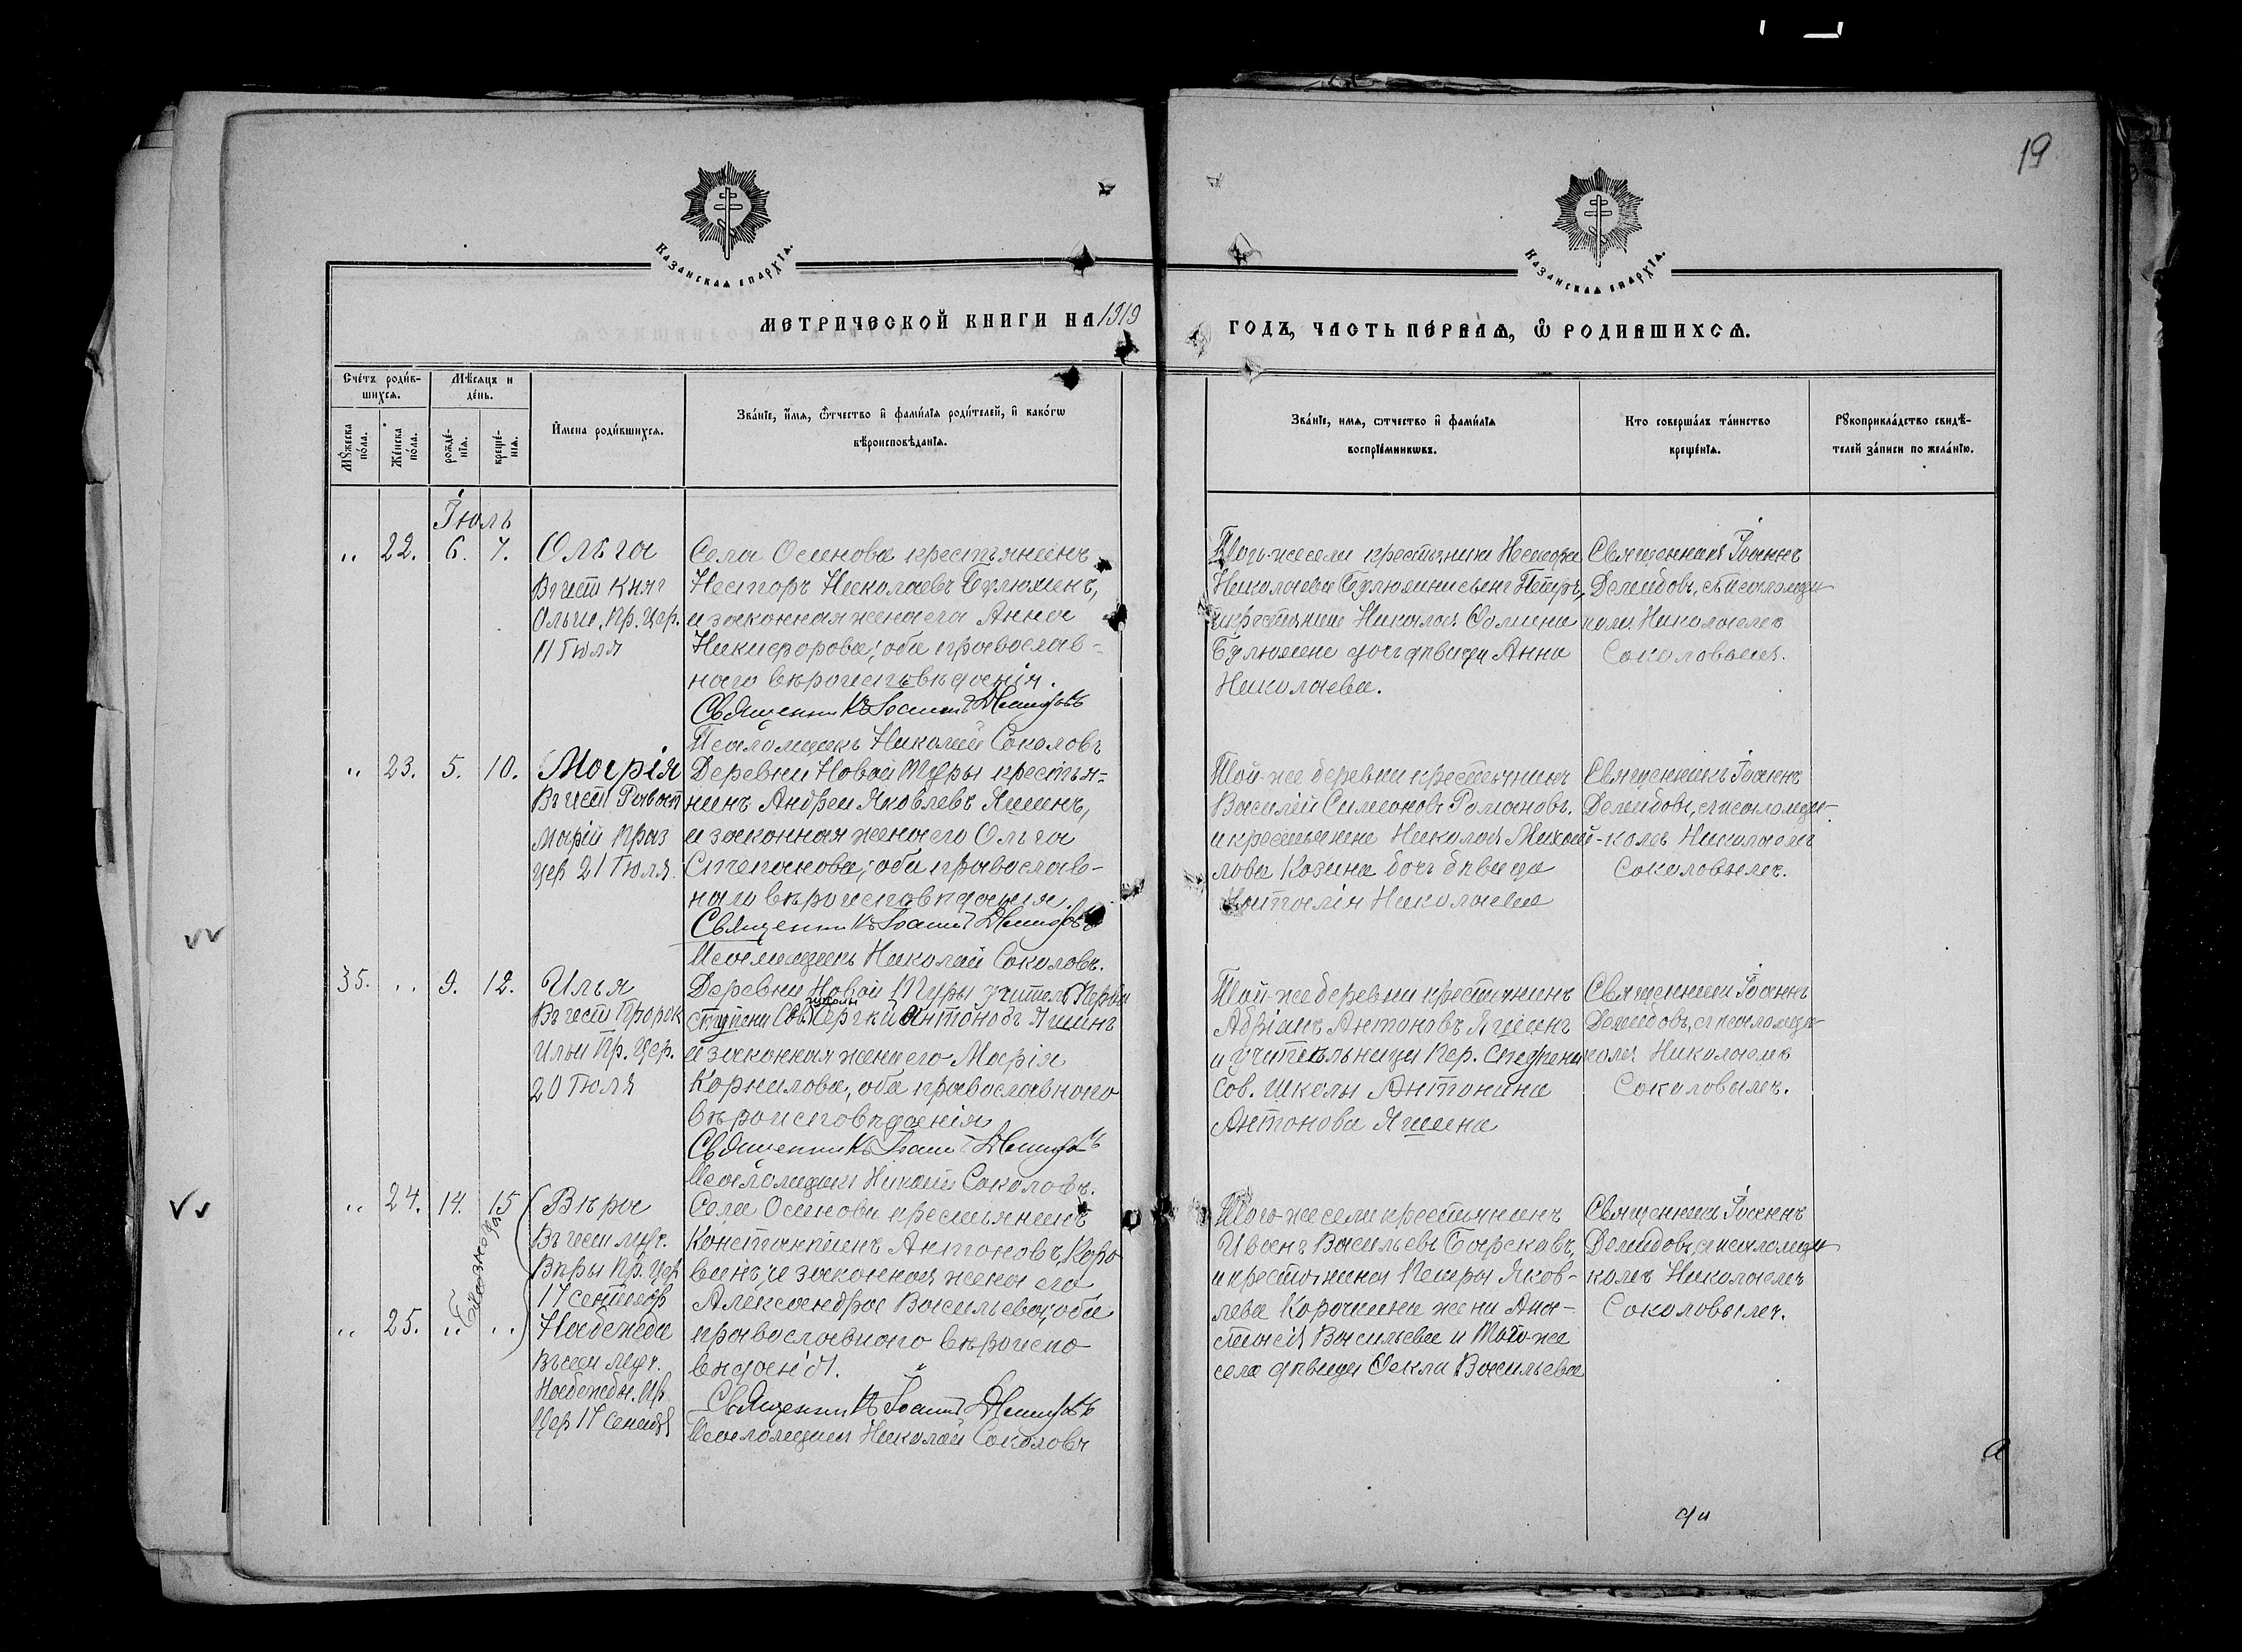 19
Казанская епархїѧ.
Казанская епархїѧ.
МЕТРИЧЕСКОЙ КНИГИ НА 1919
ГОДЪ, ЧАСТЬ ПЕРВАЯ, Ѡ РОДИВШИХСЯ.
Счетъ родив-
шихся.
Мѣсяцъ и
день.
Мужеска
пола.
Женска
пола.
рожде-
нїя.
креще-
нїя.
Имена родившихся.
Званїе, имя, ѿчество и фамилїя родителей, и какогѡ
вѣроисповѣданїя.
Званїе, имя, ѡтчество и фамилїя
воспрїемникѡвъ.
Кто совершалъ таинство
крещенїя.
Рукоприкладство свидѣ-
телей записи по желанїю.
Іюль
„ 22. 6. 7. Ольга
В чест Княг
Ольги, Пр. Цер.
11 Іюля
Села Осинова крестьянинъ
Несторъ Николаевъ Бурлюминъ,
и законная жена его Анна
Никифорова; оба православ-
наго вѣроисповѣданія.
Священникъ Іоаннъ Демидовъ
Псаломщикъ Николай Соколовъ
Того-же села крестьянина Нестора
Николаева сынъ Петръ,
и крестьянина Николая Фомина
дочь дѣвица Анна
Николаева.
Священникъ Іоаннъ
Демидовъ, съ псаломщи-
комъ Николаемъ
Соколовымъ.
„ 23. 5. 10. Марія
Въ чест Равноап
Маріи Праз
Цер 21 Іюля
Деревни Новой Туры крестья-
нинъ Андрей Яковлевъ Яшинъ,
и законная жена его Ольга
Степанова; оба православ-
наго вѣроисповѣданія.
Священникъ Іоаннъ Демидовъ
Псаломщикъ Николай Соколовъ.
Той-же деревни крестьянинъ
Василій Симоновъ Романовъ.
и крестьянина Николая Михай-
лова Козина дочь дѣвица
Наталія Николаева
Священникъ Іоаннъ
Демидовъ, съ псаломщи-
комъ Николаемъ
Соколовымъ.
35. „ 9. 12. Илья
Въ чест Пророк
Ильи Пр. Цер.
20 Іюля
Деревни Новой Туры учитель Перво
ступени Сов. школы Сергѣй Антоновъ Яшинъ
и законная жена его Марія
Корнилова, оба православнаго
вѣроисповѣданія
Священникъ Іоаннъ Демидовъ
Псаломщикъ Николай Соколовъ.
Той-же деревни крестьянинъ
Адріанъ Антоновъ Яшинъ
и учительница Пер. Ступени
Сов. Школы Антонина
Антонова Яшина
Священникъ Іоаннъ
Демидовъ, съ псаломщи-
комъ Николаемъ
Соколовымъ.
„ 24. 14. 15 Вѣра
Въ чест муч.
Вѣры Пр. Цер
17 сентябр
Близнецы
„ 25. „ „ Надежда
Въ чест муч.
Надежды. Пр.
Цер 17 сентяб
Села Осинова крестьянинъ
Константинъ Антоновъ Коро
винъ, и законная жена его
Александра Васильева; оба
православнаго вѣроиспо
вѣданія.
Священникъ Іоаннъ Демидовъ
Псаломщикъ Николай Соколовъ
Того-же села крестьянинъ
Иванъ Васильевъ Барсковъ,
и крестьянина Петра Яков-
лева жена Ана-
стасія Васильева и того-же
села дѣвица Фекла Васильева
Священникъ Іоаннъ
Демидовъ, съ псаломщи-
комъ Николаемъ
Соколовымъ.